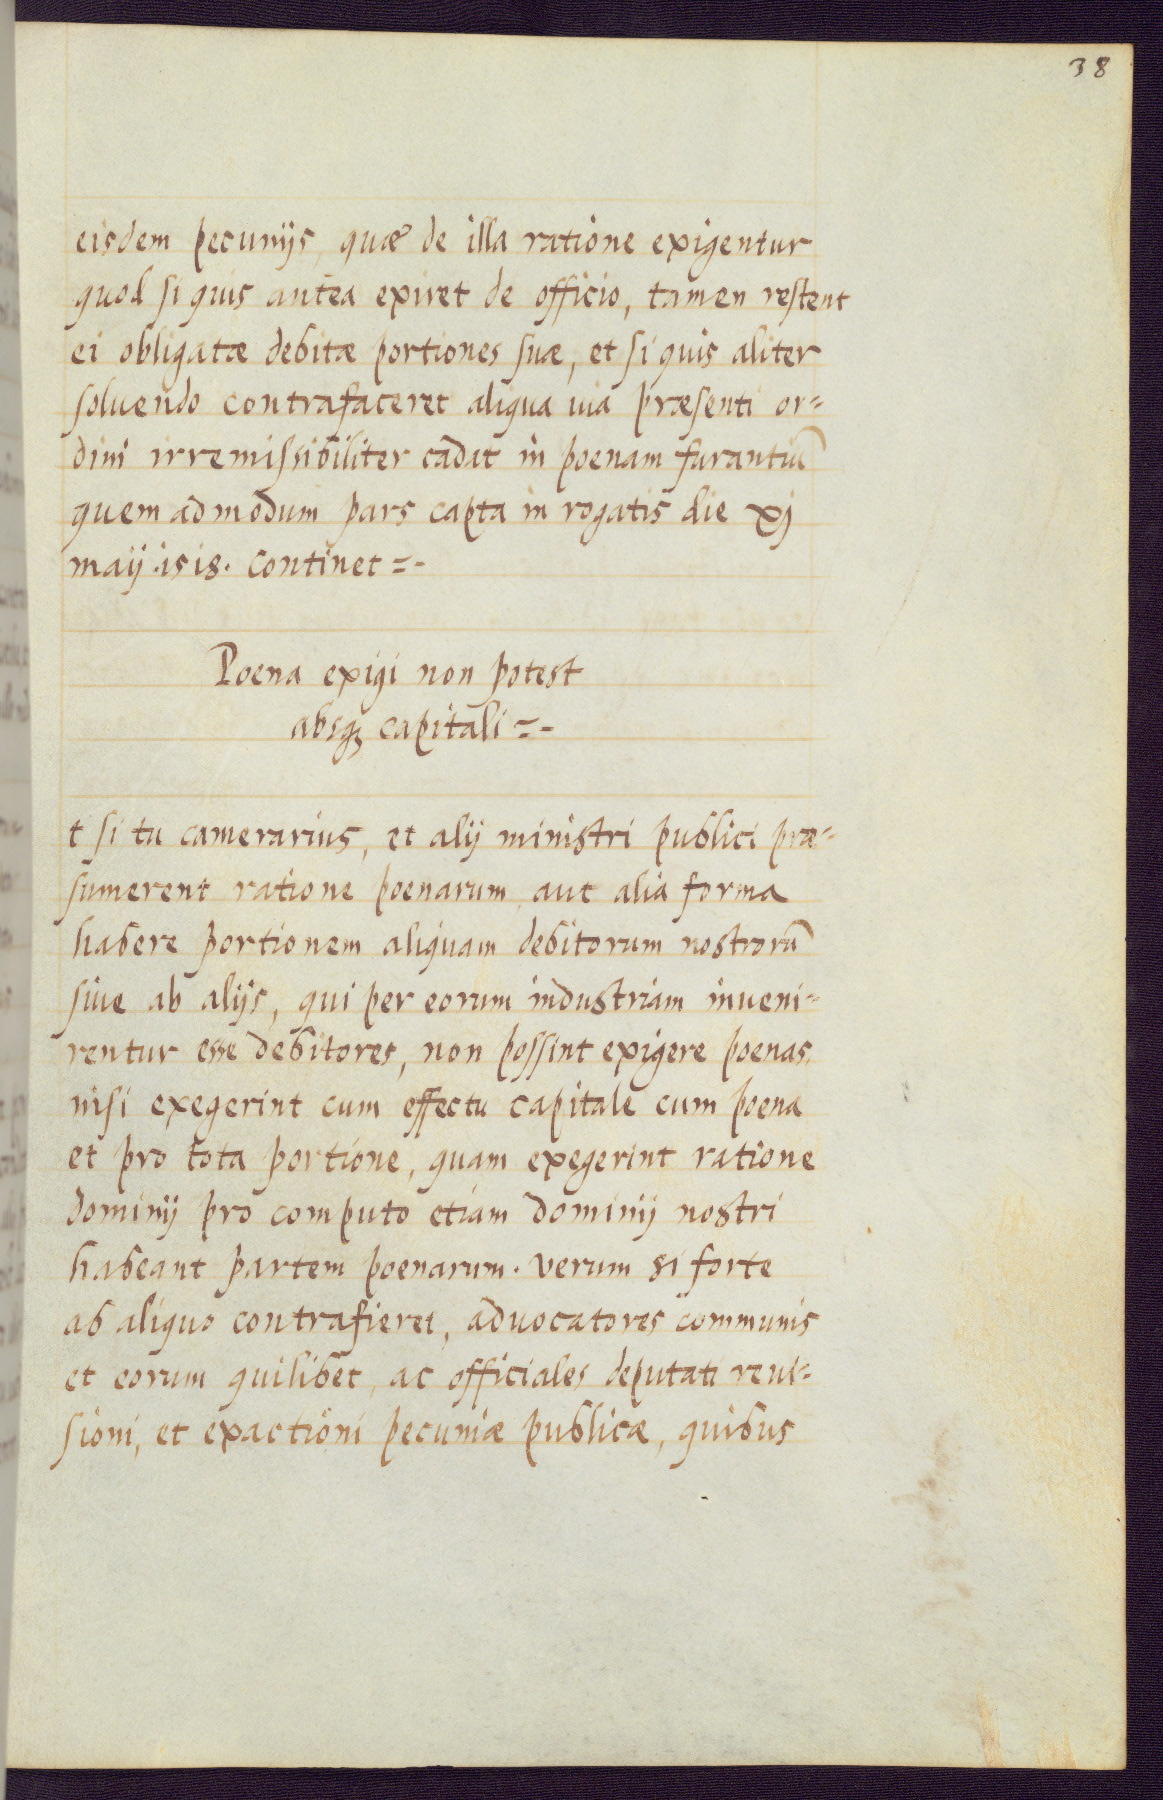 38
eisdem pecunijs, quæ de illa ratione exigentur
quod si quis antea exiret de officio, tamen restent
ei obligatæ debitæ portiones suæ, et si quis aliter
soluendo contrafaceret aliqua uia præsenti or=
dini irremissibiliter cadat in poenam furantiū
quem admodum pars capta in rogatis die xj
maij .1518. continet =-
Poena exigi non potest
absqꝫ capitali =-
t si tu camerarius, et alij ministri publici præ=
sumerent ratione poenarum, aut alia forma
habere portionem aliquam debitorum nostrorū
siue ab alijs, qui per eorum industriam inueni=
rentur esse debitores, non possint exigere poenas,
nisi exegerint cum effectu capitale cum poena
et pro tota portione, quam exegerint ratione
dominij pro computo etiam dominij nostri
habeant partem poenarum. verum si forte
ab aliquo contrafieret, aduocatores communis
et eorum quilibet, ac officiales deputati reui=
sioni, et exactioni pecuniæ publicæ, quibus